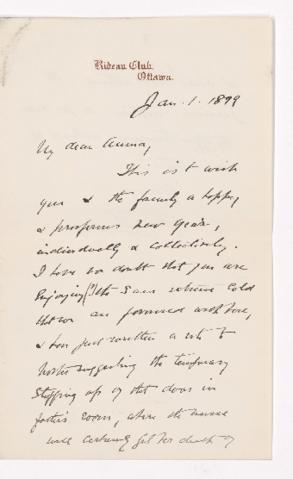 Rideau Club.
Ottawa.
Jan. 1. 1899
My dear Aurora,
This is to wish
you & the family a happy
& prosperous New Year,
individually & collectively.
I have no doubt that you are
Enjoying (?) the same extreme Cold
that we are favoured with here,
& have just written a note to
suggesting the temporary
stopping up of that door in
father's room, where the nurse
will certainly get her death of